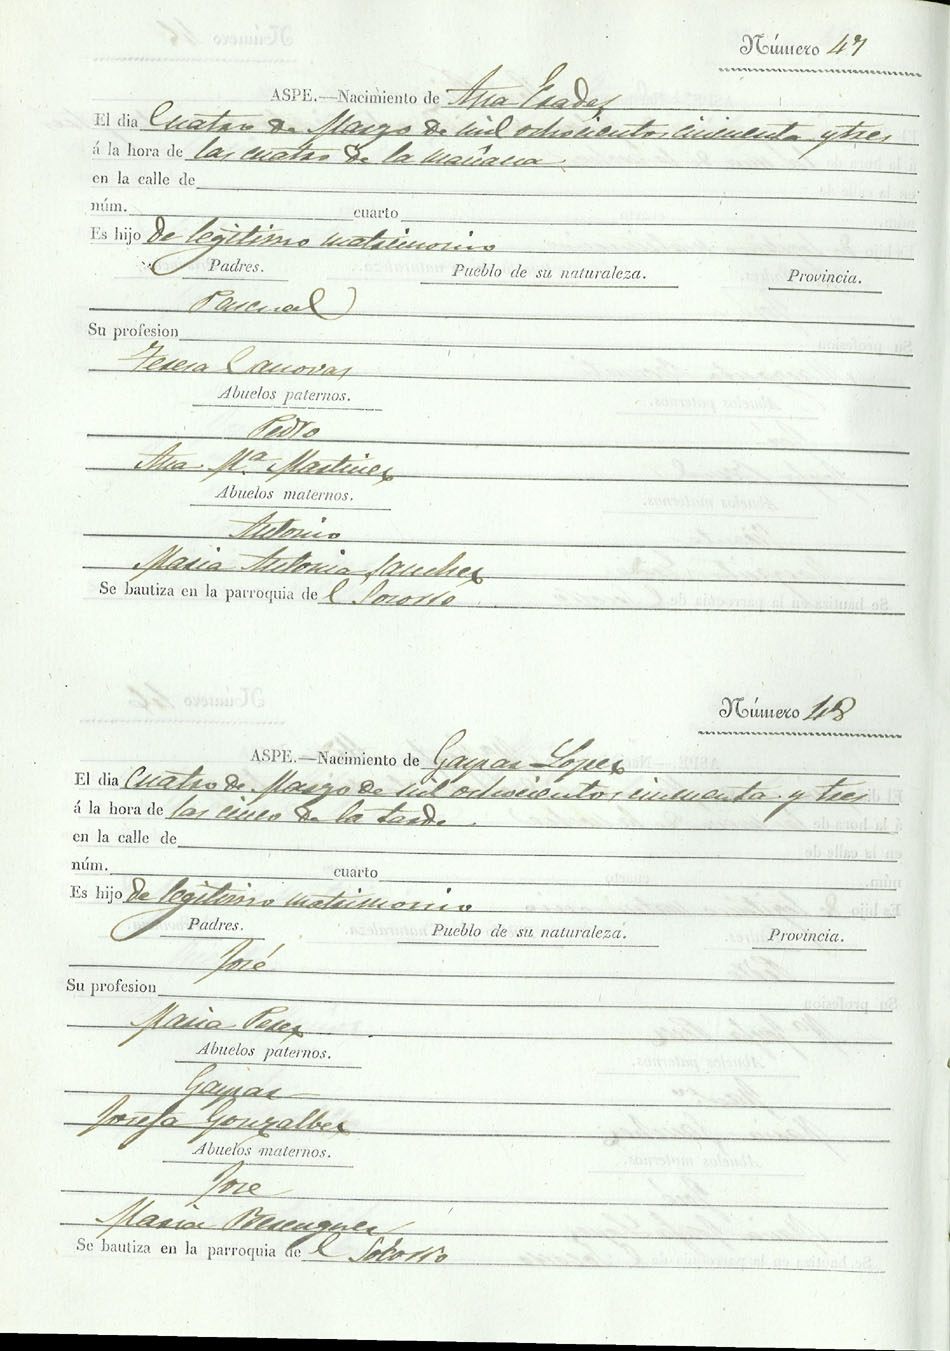 Número 47
ASPE.—Nacimiento de Ana Prades
El dia Cuatro de Marzo de mil ochocientos cincuenta y tres
á la hora de las cuatro de la mañana
en la calle de
núm. cuarto
Es hijo de legitimo matrimonio
Padres. Pueblo de su naturaleza. Provincia.
Pascual
Su profesion
Teresa Canovas
Abuelos paternos.
Pedro
Ana M.ª Martinez
Abuelos maternos.
Antonio
Maria Antonia Sanchez
Se bautiza en la parroquia de l Socorro
Número 48
ASPE.—Nacimiento de Gaspar Lopez
El dia Cuatro de Marzo de mil ochocientos cincuenta y tres
á la hora de las cinco de la tarde.
en la calle de
núm. cuarto
Es hijo de legitimo matrimonio
Padres. Pueblo de su naturaleza. Provincia.
José
Su profesion
Maria Perez
Abuelos paternos.
Gaspar
Josefa Gonzalbez
Abuelos maternos.
Jose
Maria Berenguer
Se bautiza en la parroquia de l Socorro